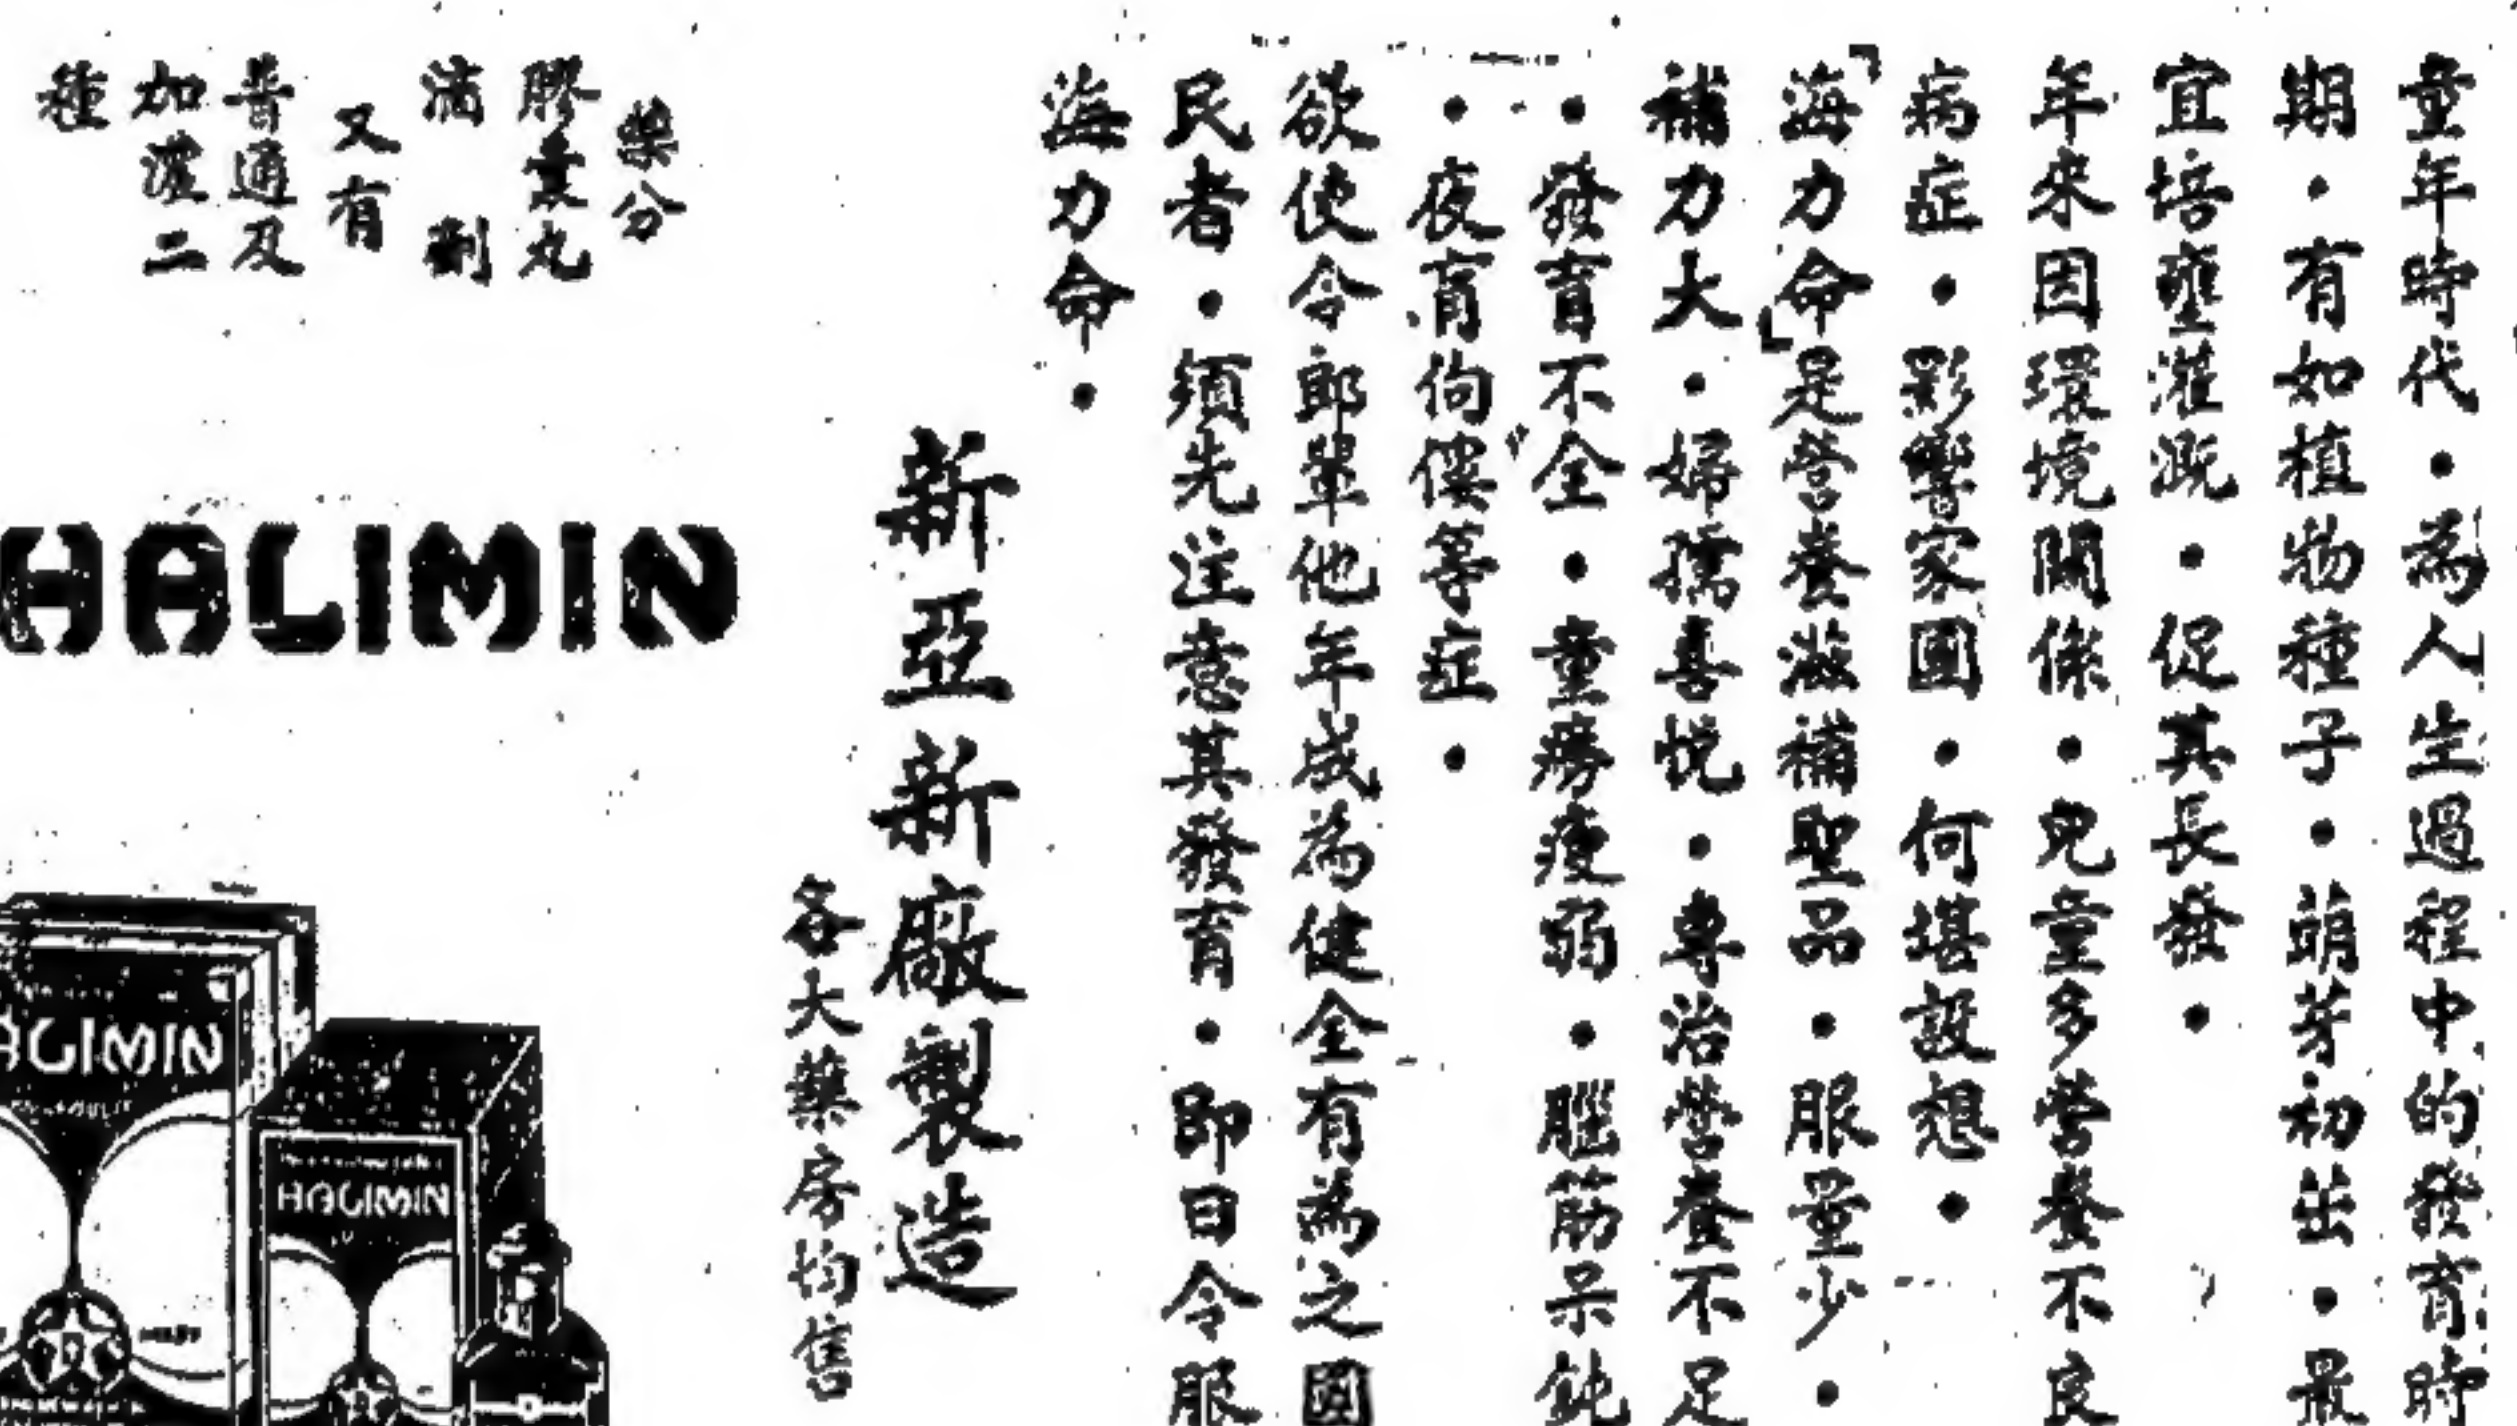 童年時代·為人生過程中的發育時
期·有如植物種子·萌芽初茁·最
宜培壅灌溉·促其長發·
年來因環境關係·兒童多營養不良
病症·影響家國·何堪設想·
「海力命」是營養滋補聖品·服量少·
補力大·婦孺喜悅·專治營養不足
·發育不全·童癆瘦弱·腦筋呆鈍
·夜盲佝僂等症·
欲使令郎輩他年成為健全有為之國
民者·須先注意其發育·即日令服
海力命·
新亞新廠製造
各大藥房均售
藥分
膠囊丸
滴劑
又有
普通及
加濃二
種
HALIMIN
HALIMIN
HALIMIN